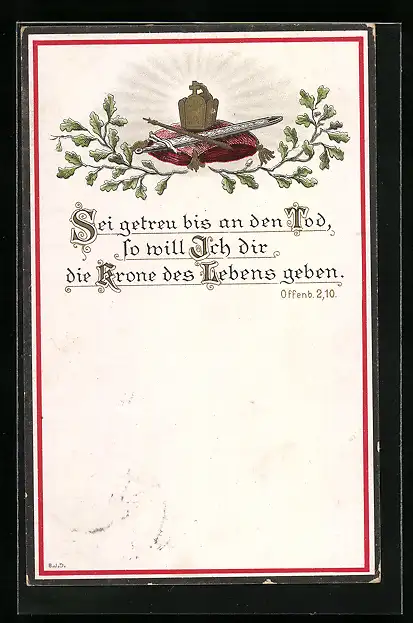 Sei getreu bis an den Tod,
so will Ich dir
die Krone des Lebens geben.
Offenb. 2,10.